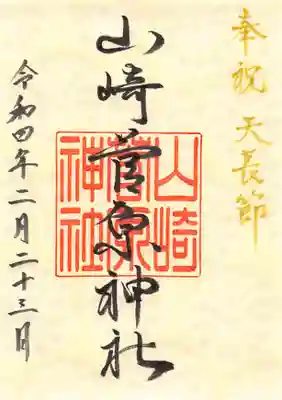 奉祝 天長節
山崎菅原神社
山崎菅原神社
令和四年二月二十三日